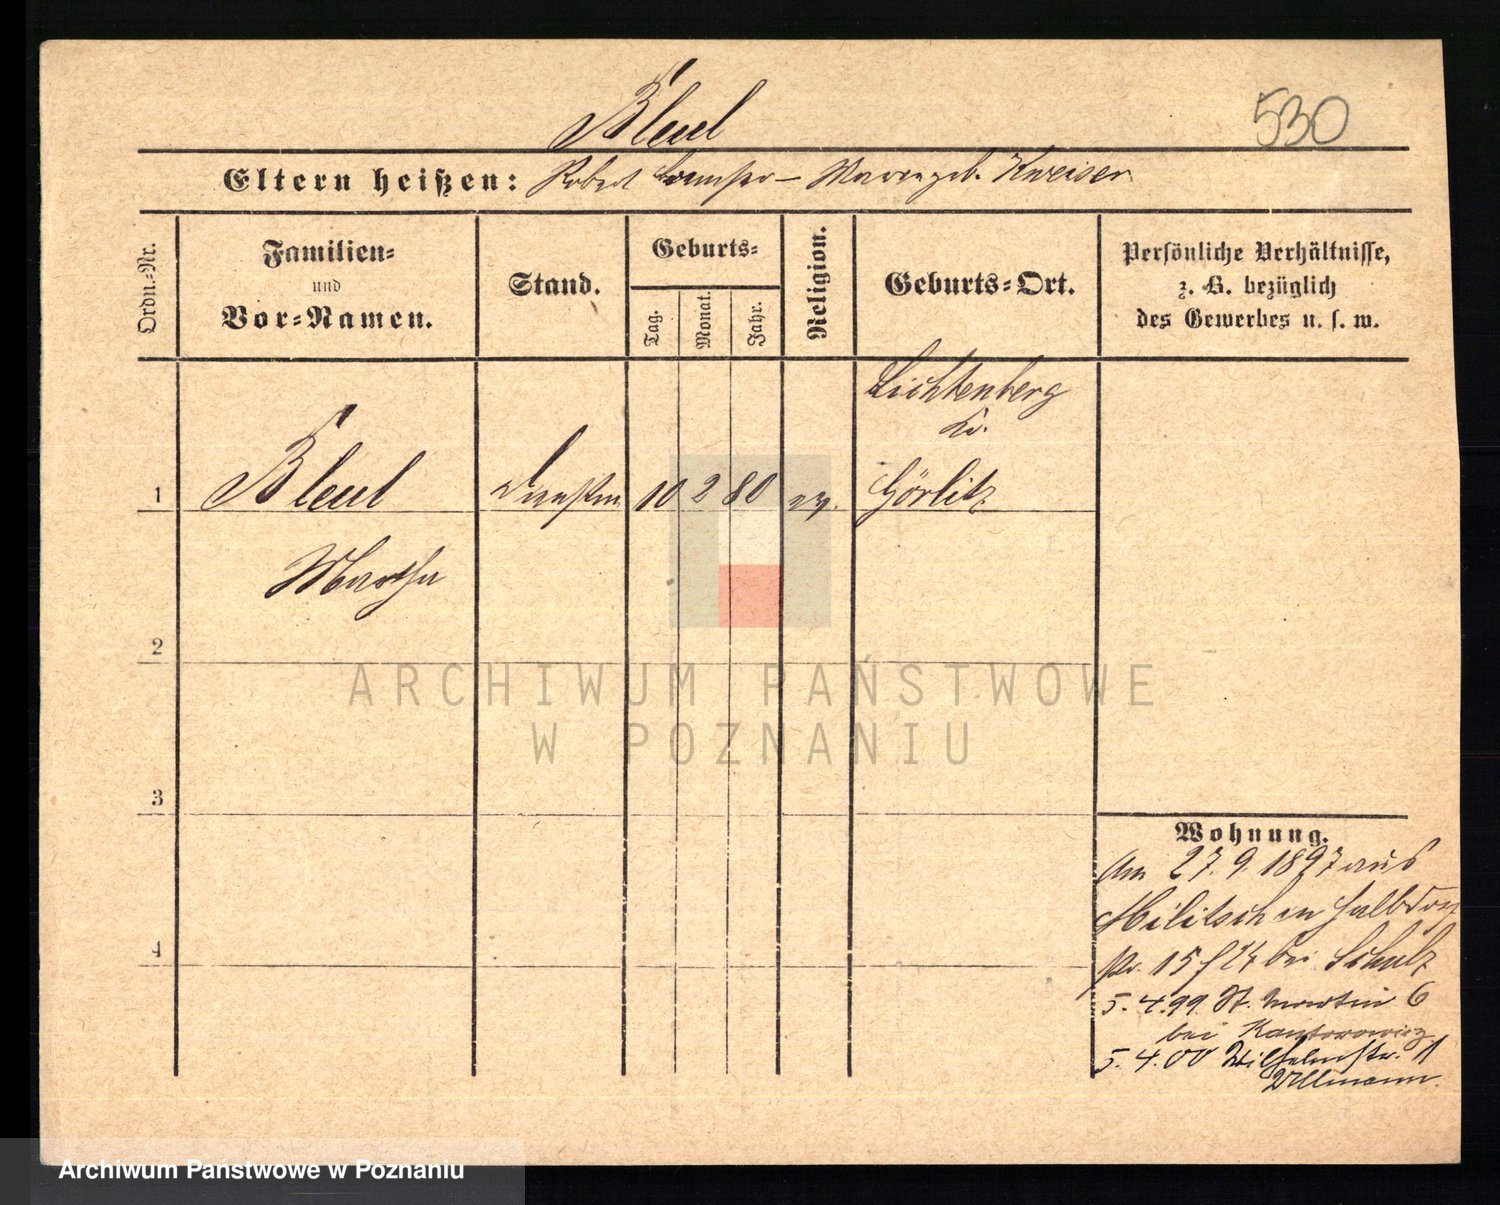 Bleul
530
Eltern heißen: Robert
geb. Kneiser
Ordn.-Nr.
Familien-
und
Vor-Namen.
Stand.
Geburts-
Tag.
Monat.
Jahr.
Religion.
Geburts-Ort.
Persönliche Verhältnisse,
z. B. bezüglich
des Gewerbes u. s. w.
Lichtenberg
Kr.
1 Bleul 10 2 80 ev. Görlitz
Martha
2
3
4
Wohnung.
Am 27. 9. 1897 aus
Militsch Halbdorf
str. 15 bei Schulz
5. 4. 99. St. Martin 6
bei Kantorowicz
5. 4. 00 Wilhelmstr. 11
Ullmann.
ARCHIWUM PAŃSTWOWE
W POZNANIU
Archiwum Państwowe w Poznaniu